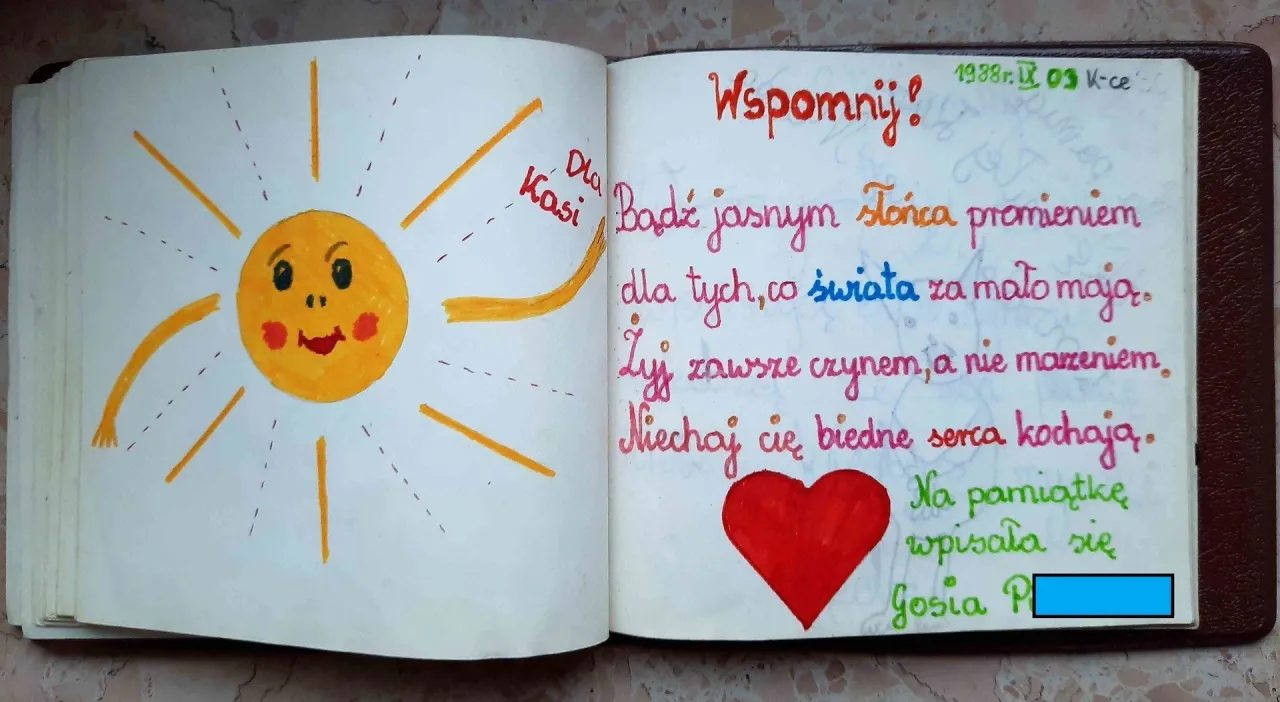 Dla
Kasi
1988r. IX 03 K-ce
Wspomnij!
Bądź jasnym słońca promieniem
dla tych, co świata za mało mają.
Żyj zawsze czynem, a nie marzeniem.
Niechaj cię biedne serca kochają.
Na pamiątkę
wpisała się
Gosia P